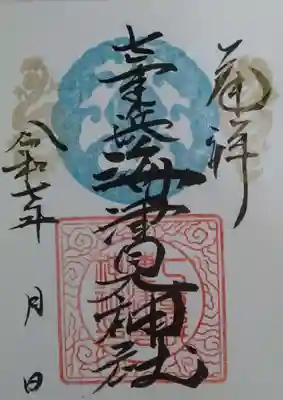 七重浜海津見神社
令和七年　月　日